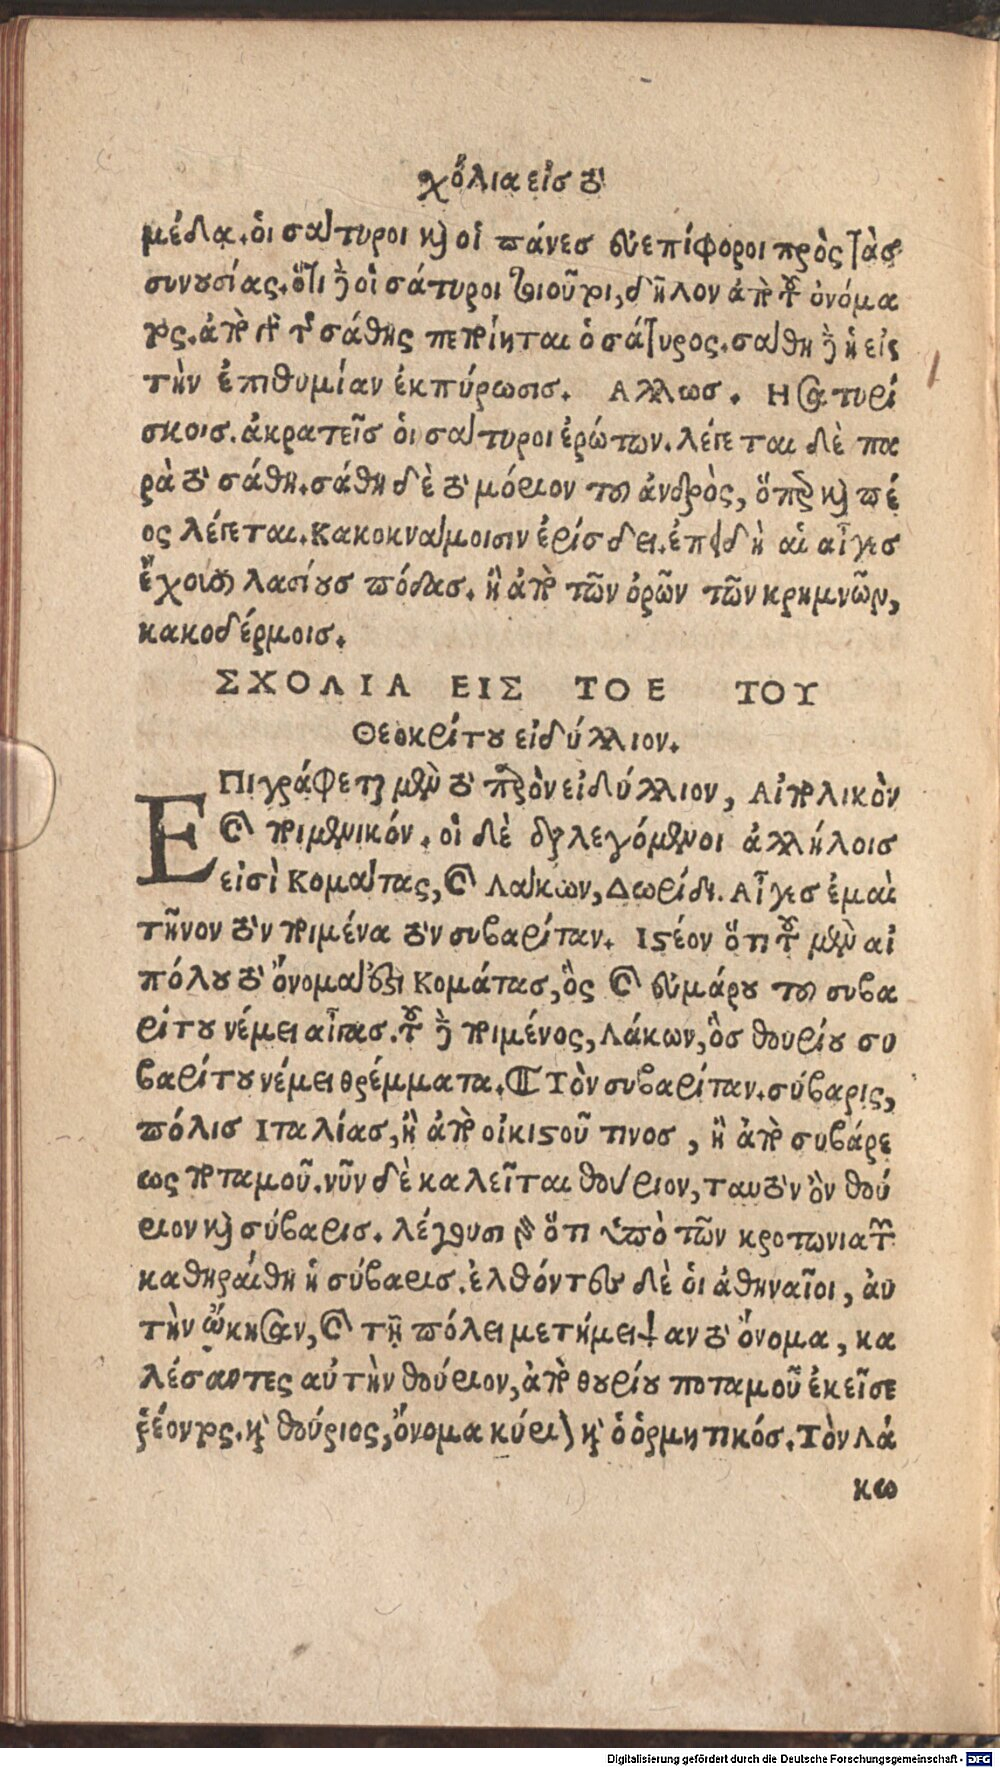 χόλια εἰσ τὸ
μέδα. ὁι σάτυροι καὶ οἱ πάνεσ εὐεπίφοροι πρὸς τὰσ
συνουσίας. ὅτι γὰρ οἱ σάτυροι τοιοῦτοι, δῆλον ἀπὸ τοῦ ὀνόμα
τος. ἀπὸ γὰρ τῆς σάθης πεποίηται ὁ σάτυρος. σάθη γὰρ ἡ εἰς
τὴν ἐπιθυμίαν ἐκπύρωσισ. Αλλωσ. Η σατυρί
σκοισ. ἀκρατεῖσ ὁι σάτυροι ἐρώτων. λέγεται δὲ πα
ρὰ τὸ σάθη. σάθη δὲ τὸ μόριον τοῦ ἀνδρὸς, ὅπερ καὶ πέ
ος λέγεται. Κακοκνάμοισιν ἐρίσδει. ἐπειδὴ αἱ αἶγεσ
ἔχουσι λασίουσ πόδασ. ἢ ἀπὸ τῶν ὀρῶν τῶν κρημνῶν,
κακοδέρμοισ.
ΣΧΟΛΙΑ ΕΙΣ ΤΟ Ε ΤΟΥ
Θεοκρίτου εἰδύλλιον.
ΕΠιγράφεται μὲν τὸ παρὸν εἰδύλλιον, Αἰπολικὸν
καὶ ποιμενικόν. οἱ δὲ διαλεγόμενοι ἀλλήλοισ
εἰσὶ Κομάτας, καὶ Λάκων, Δωρίδι. Αἶγεσ ἐμαὶ
τῆνον τὸν ποιμένα τὸν συβαρίταν. Ιστέον ὅτι τοῦ μὲν αἰ
πόλου τὸ ὄνομά ἐστι Κομάτασ, ὃς καὶ εὐμάρου τοῦ συβα
ρίτου νέμει αἶγασ. τοῦ δὲ ποιμένος, Λάκων, ὃσ θουρίου συ
βαρίτου νέμει θρέμματα. Τὸν συβαρίταν. σύβαρις,
πόλισ Ιταλίασ, ἢ ἀπὸ οἰκιστοῦ τινοσ, ἢ ἀπὸ συβάρε
ως ποταμοῦ. νῦν δὲ καλεῖται θούριον, ταυτὸν ὂν θού
ριον καὶ σύβαρισ. λέγουσι γὰρ ὅτι ὑπὸ τῶν κροτωνιατῶν
καθηράιθη ἡ σύβαρισ. ἐλθόντεσ δὲ ὁι ἀθηναῖοι, ἀυ
τὴν ὤκησαν, καὶ τῇ πόλει μετήμειψαν τὸ ὄνομα, κα
λέσαντες αὐτὴν θούριον, ἀπὸ θουρίου ποταμοῦ ἐκεῖσε
ῥέοντος. καὶ θούριος, ὄνομα κύριον καὶ ὁ ὁρμητικόσ. Τὸν Λά
κω